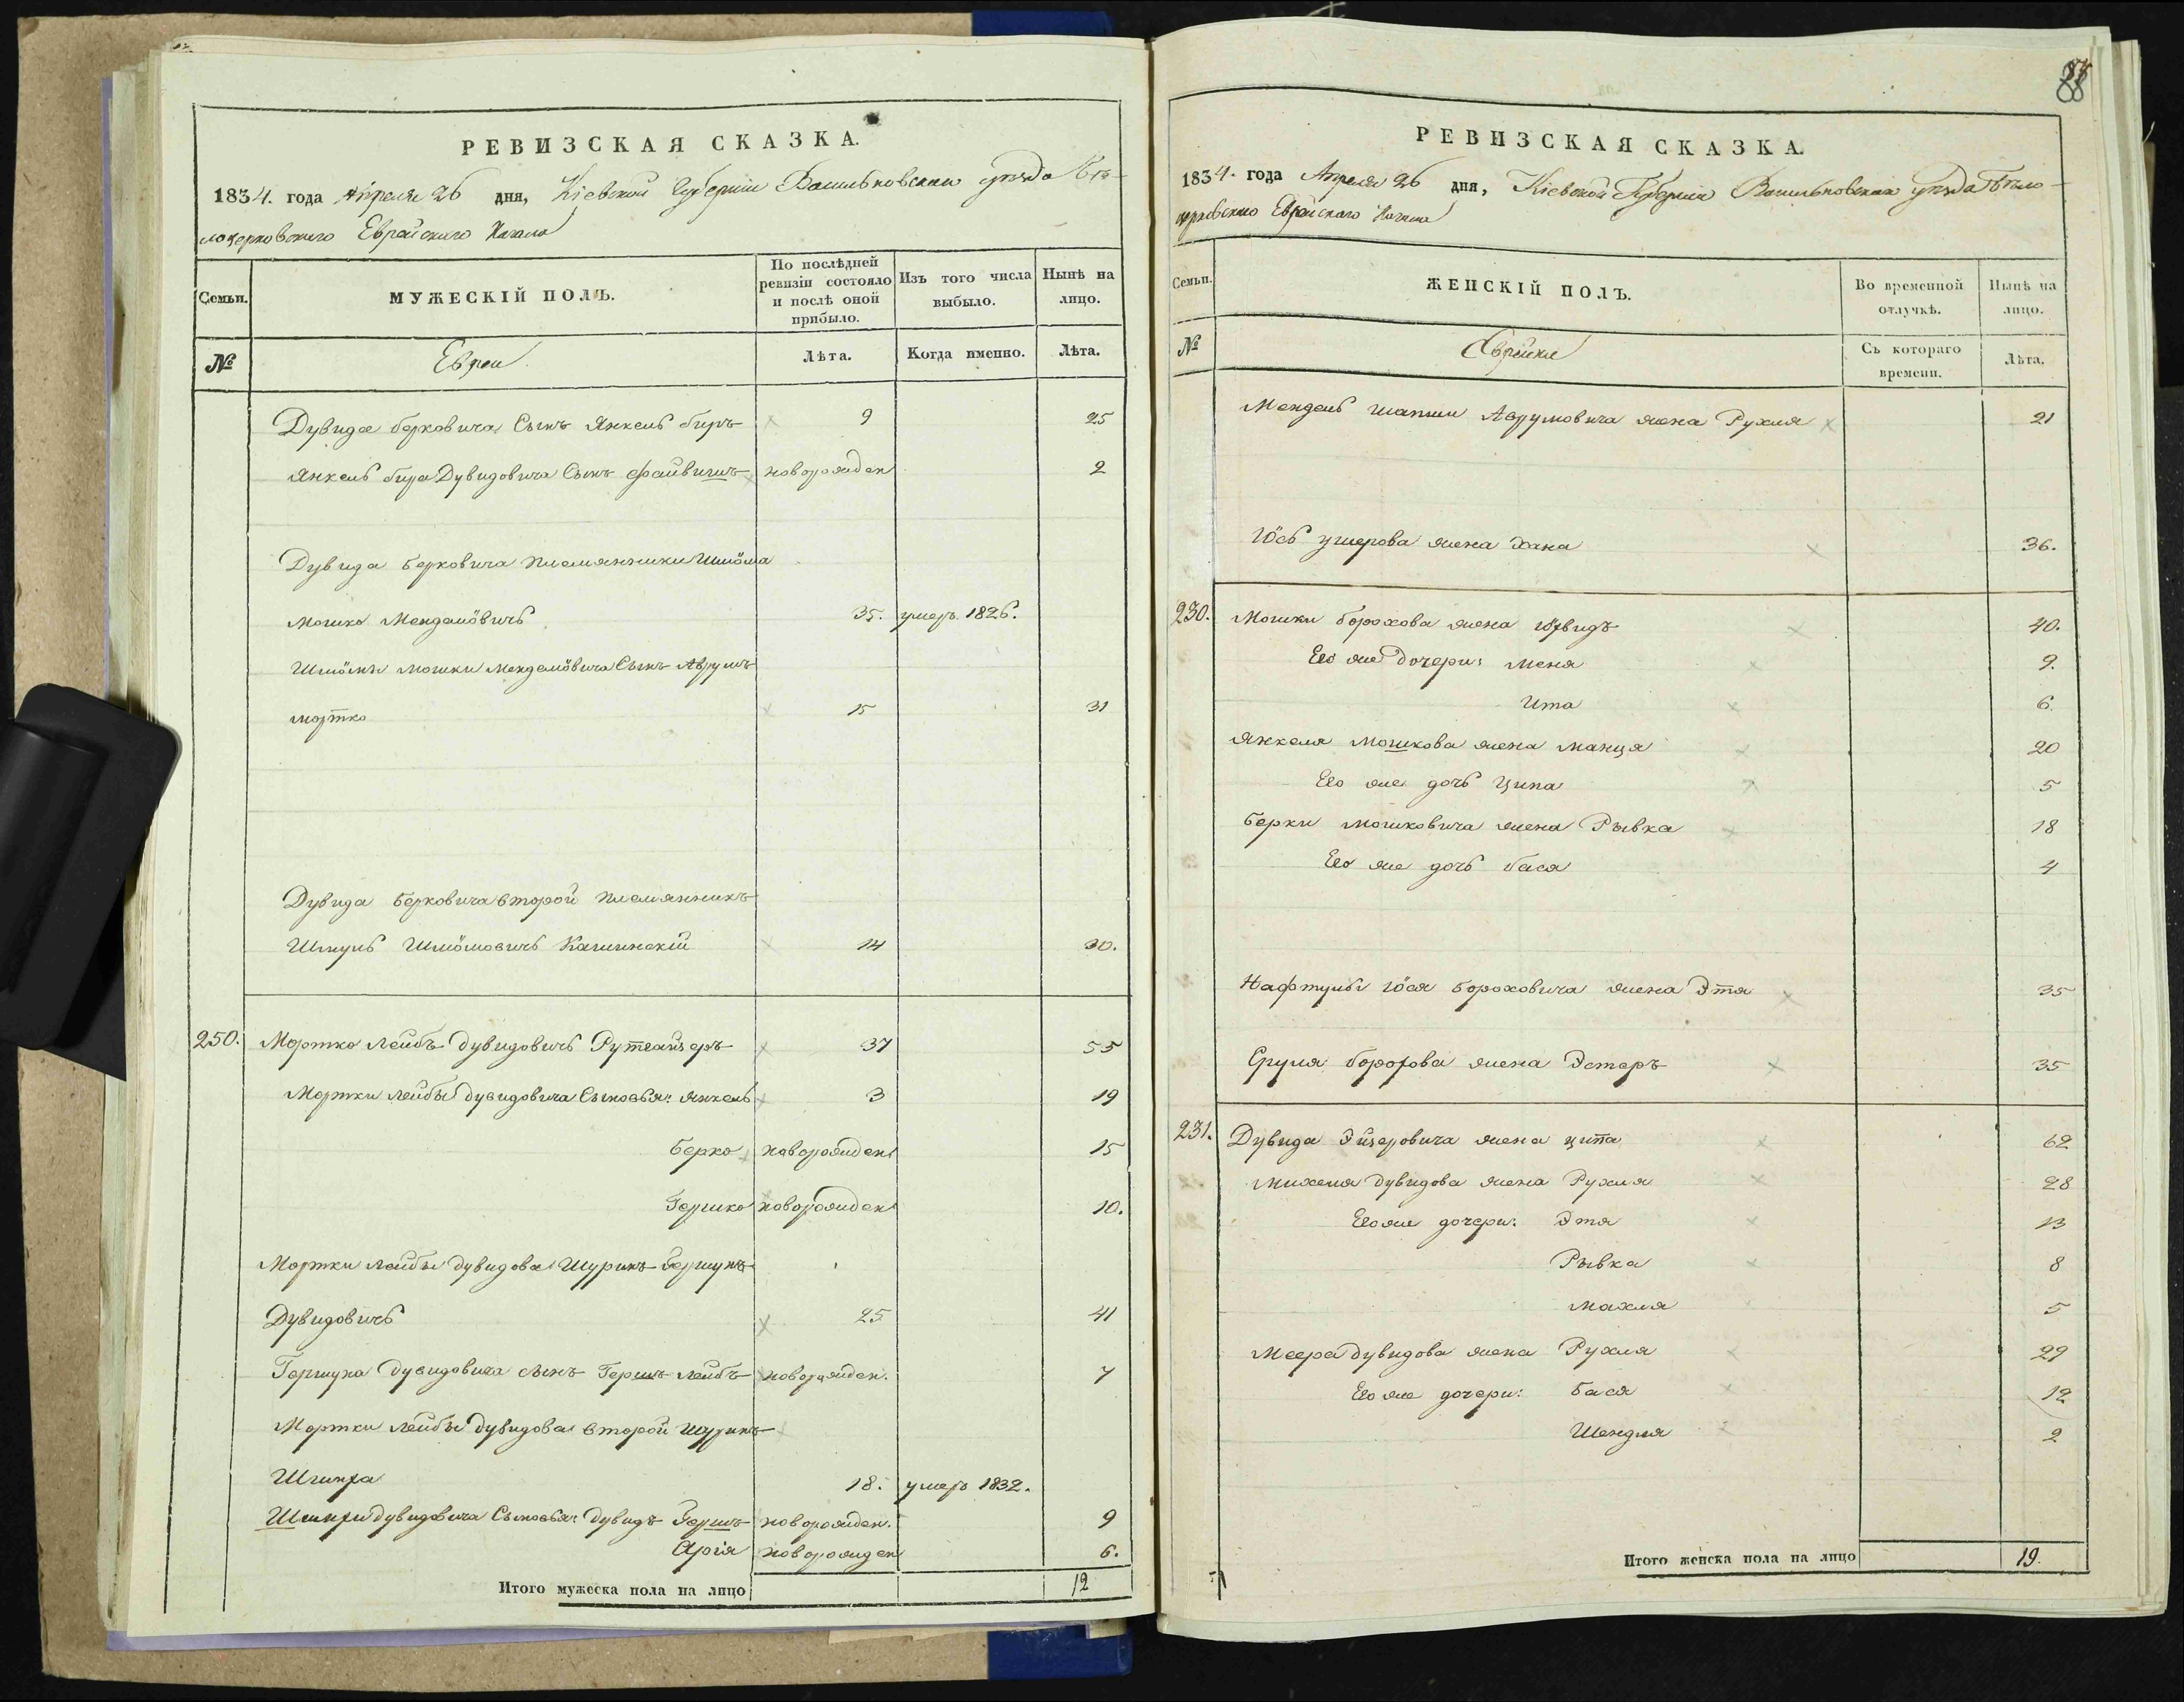 РЕВИЗСКАЯ СКАЗКА.
1834. года Апреля 26 дня, Кіевской Губерніи Васильковскаго уѣзда Бѣ-
лоцерковскаго Еврейскаго Кагала
Семьи.
МУЖЕСКІЙ ПОЛЪ.
По послѣдней ревизіи состояло и послѣ оной прибыло.
Изъ того числа выбыло.
Нынѣ на лицо.
№
Евреи
Лѣта.
Когда именно.
Лѣта.
Дувида берковича Сынъ Янкель биръ 9 25
Янкель бира Дувидовича Сынъ Файвишъ новорожден 2
Дувида берковича племянники Шлiома
Мошко Менделiовичь 35. умеръ 1826.
Шлiомы мошки менделiовича Сынъ Аврумъ
мортко 15 31
Дувида берковича второй племянникъ
Шмуль Шлiомовичь Кашинскій 14 30.
250. Мортко лейбъ дувидовичь 37 55
Мортки лейбы дувидовича Сыновья: янкель 3 19
берко новорожденъ 15
Гершко новорожден 10.
Мортки лейбы дувидова Шуринъ Гершунъ
Дувидовичь 25 41
Гершуна дувидовича сынъ Гершъ лейбъ новорожден. 7
Мортки лейбы дувидова второй шуринъ
18. умеръ 1832.
дувидовича Сыновья: дувидъ Гершъ новорожден. 9
новорожден 6.
Итого мужеска пола на лицо 12
88
РЕВИЗСКАЯ СКАЗКА.
1834. года Апреля 26 дня, Кіевской Губерніи Васильковскаго уѣзда Бѣло-
церковскаго Еврейскаго Кагала
Семьи.
ЖЕНСКІЙ ПОЛЪ.
Во временной отлучкѣ.
Нынѣ на лицо.
№
Еврейки
Съ котораго времени.
Лѣта.
Мендель шапши Аврумовича жена Рухля 21
Iось ушерова жена Хана 36.
230. Мошки борохова жена 40.
Его же дочери: меня 9.
Ита 6.
Янкеля мошкова жена манця 20
Его же дочь Ципа 5
берки мошковича жена Рывка 18
Его же дочь бася 4
Нафтулы Iося бороховича жена Этя 35
Сруля борохова жена Эстеръ 35
231. Дувида Эйзеровича жена ципа 62
михеля дувидова жена Рухля 28
Его же дочери: Этя 13
Рывка 8
махля 5
меера дувидова жена Рухля 29
Его же дочери: бася 12
Шендля 2
Итого женска пола на лицо 19.